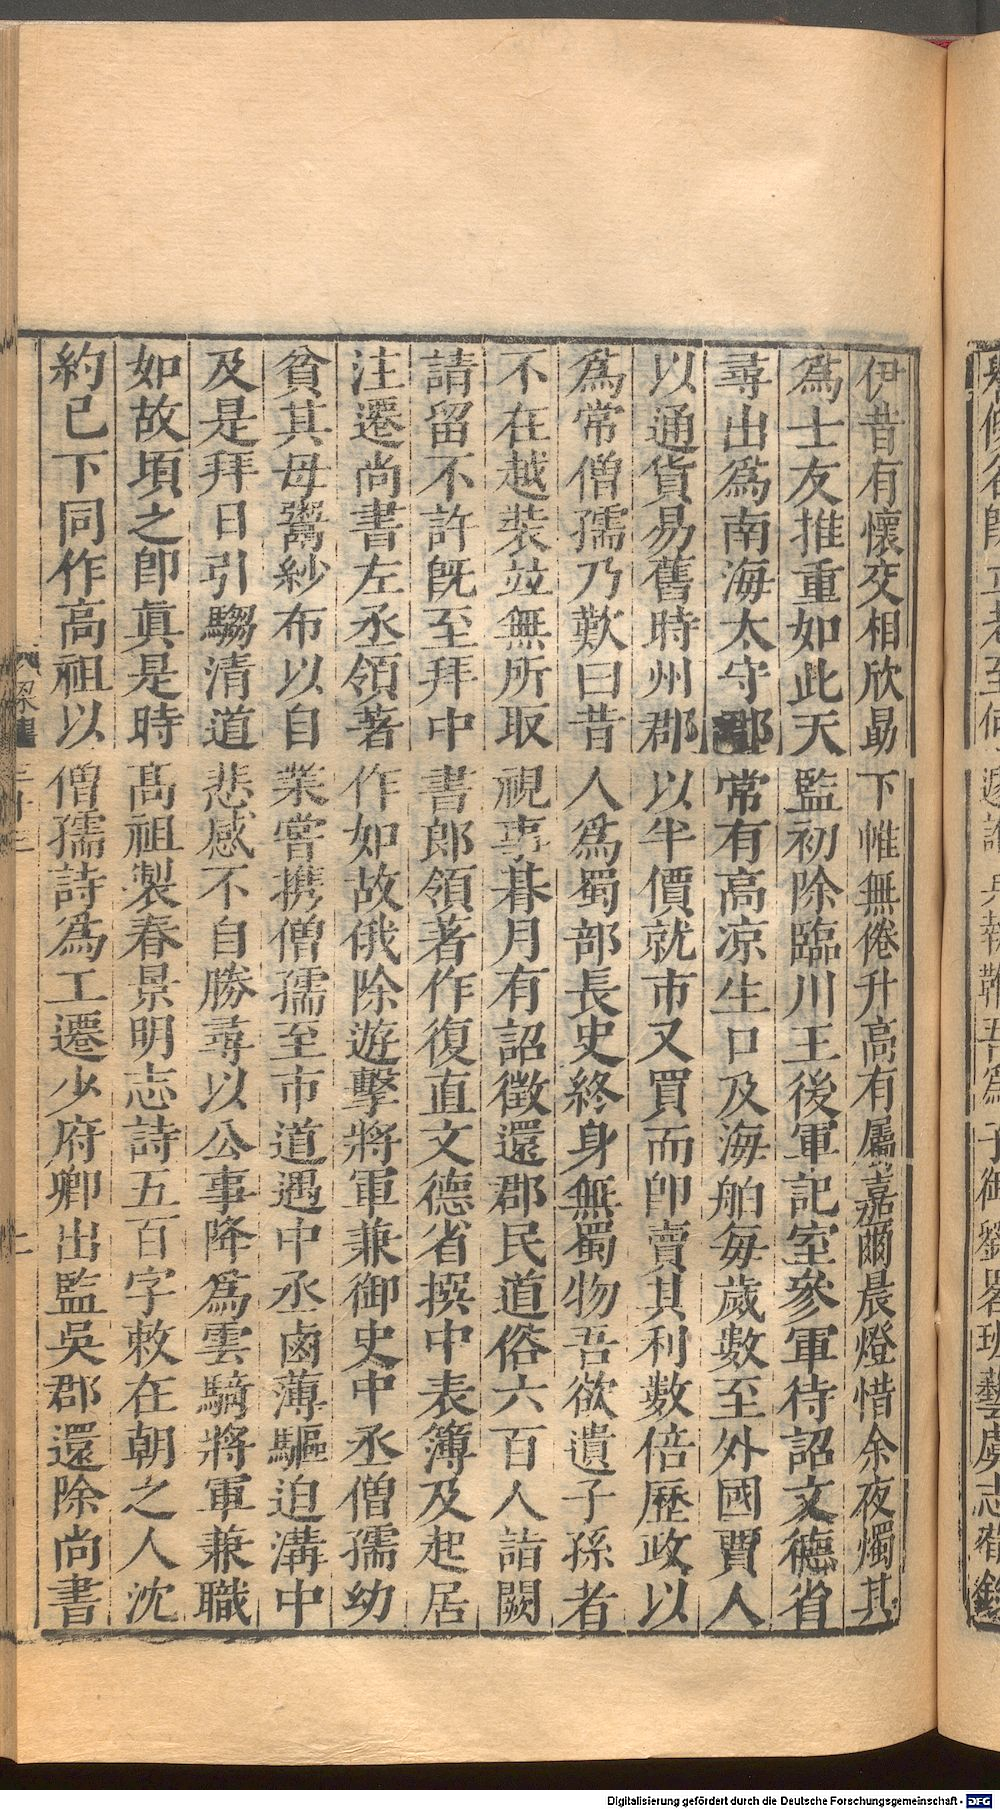 伊昔有懷交相欣勗下帷無倦升高有屬嘉爾晨燈惜余夜燭其
爲士友推重如此天監初除臨川王後軍記室參軍待詔文德省
尋出爲南海太守郡常有高凉生口及海舶每歲數至外國賈人
以通貨易舊時州郡以半價就市又買而卽賣其利數倍歷政以
爲常僧孺乃歎曰昔人爲蜀部長史終身無蜀物吾欲遺子孫者
不在越裝並無所取視事朞月有詔徵還郡民道俗六百人詣闕
請留不許旣至拜中書郎領著作復直文德省撰中表簿及起居
注遷尚書左丞領著作如故俄除遊擊將軍兼御史中丞僧孺幼
貧其母鬻紗布以自業嘗攜僧孺至市道遇中丞鹵薄驅迫溝中
及是拜日引騶清道悲感不自勝尋以公事降爲雲騎將軍兼職
如故頃之卽眞是時高祖製春景明志詩五百字敕在朝之人沈
約已下同作高祖以僧孺詩爲工遷少府卿出監吳郡還除尚書
Digitalisierung gefördert durch die Deutsche Forschungsgemeinschaft - DFG